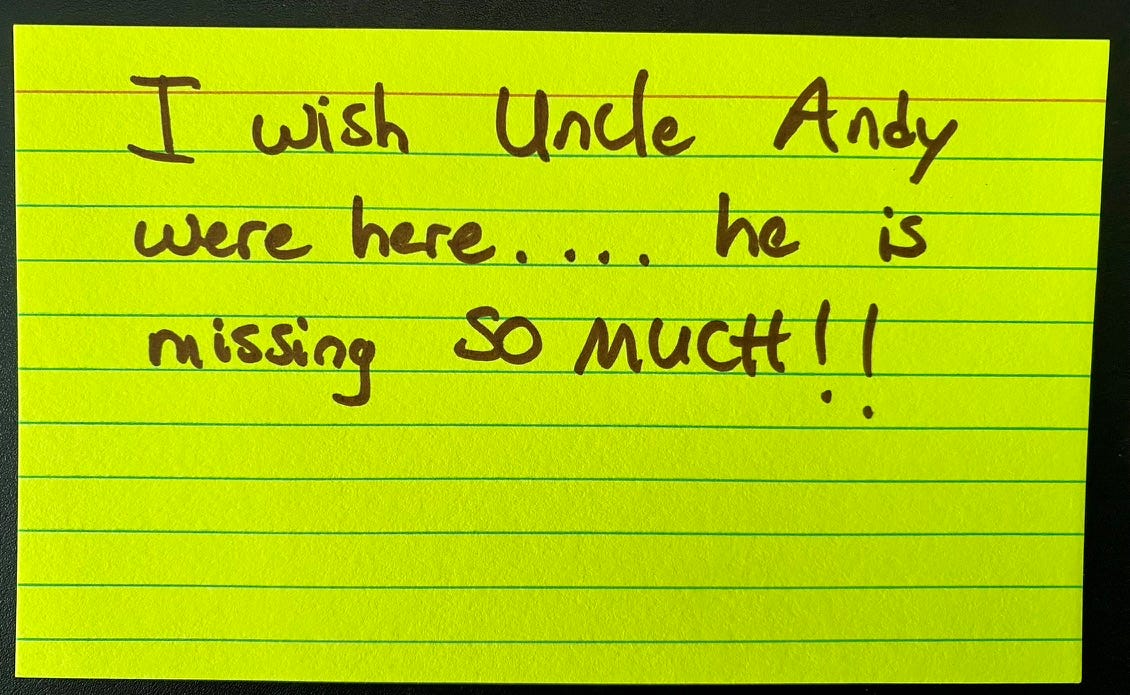 I wish Uncle Andy
were here.... he is
missing SO MUCH!!